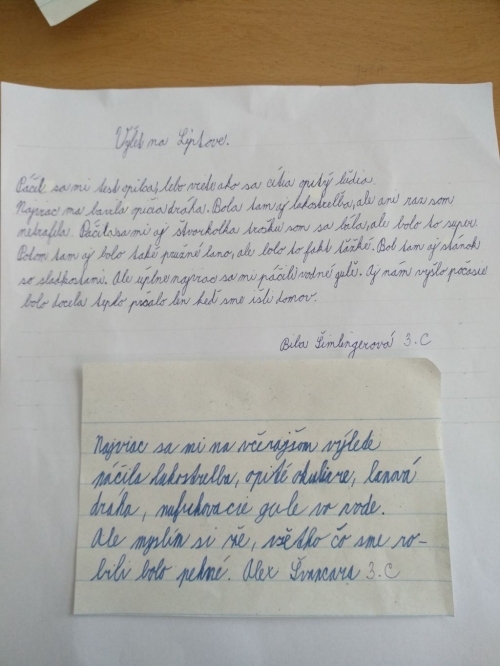 Výlet na Liptove.
Páčil sa mi test opilca, lebo viete ako sa cítia opitý ľúdia.
Najviac ma bavila opičia dráha. Bola tam aj lukostrelba, ale ani raz som
netrafela. Páčila sa mi aj štvorkolka trochu som sa bála, ale bolo to super.
Potom tam aj bolo také pružné lano, ale bolo to fakt ťažké. Bol tam aj stánok
so sladkosťami. Ale úplne najviac sa mi páčili vodné gule. Aj nám vyšlo počasie
bolo docela teplo pršalo len keď sme išli domov.
Bila Šimlingerová 3.C
Najviac sa mi na včerajšom výlede
páčila lukostrelba, opité okuliare, lanová
dráha, nafukovacie gule vo vode.
Ale myslím si že, všetko čo sme ro-
bili bolo pekné. Alex Švancara 3.C